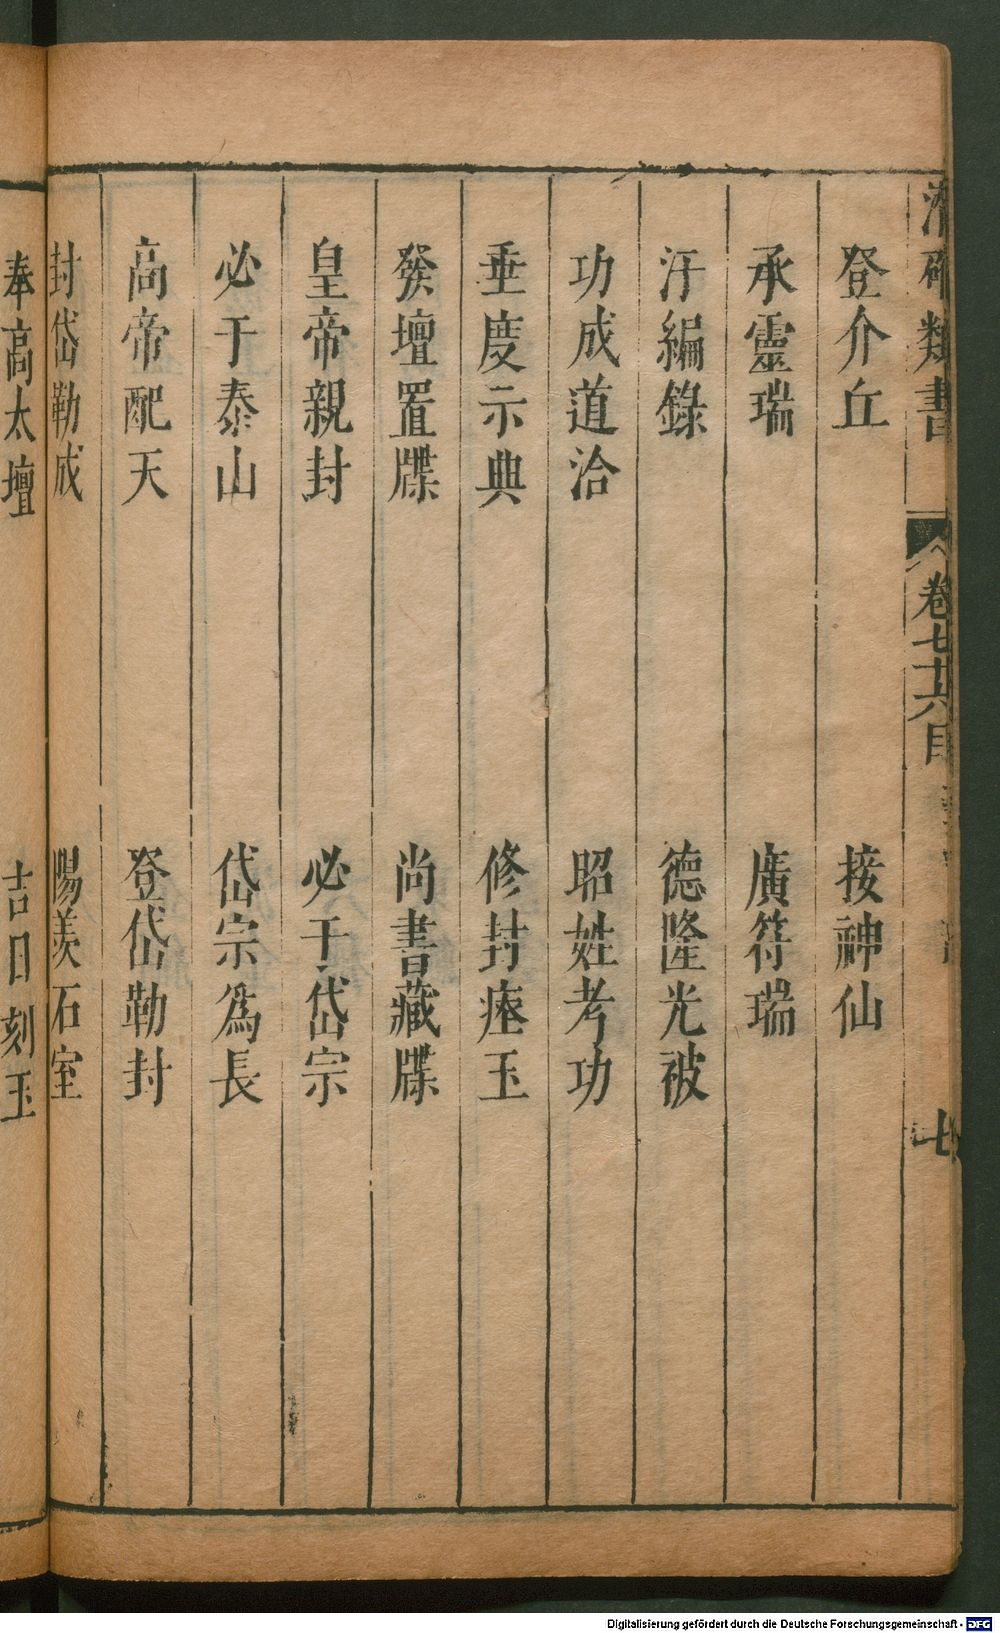 潛確類書 卷七十六目 七
登介丘 接神仙
承靈瑞 廣符瑞
汗編錄 德隆光被
功成道洽 昭姓考功
垂度示典 修封瘞玉
發壇置牒 尚書藏牒
皇帝親封 必于岱宗
必于泰山 岱宗爲長
高帝配天 登岱勒封
封岱勒成 陽羨石室
奉高太壇 吉日刻玉
Digitalisierung gefördert durch die Deutsche Forschungsgemeinschaft - DFG